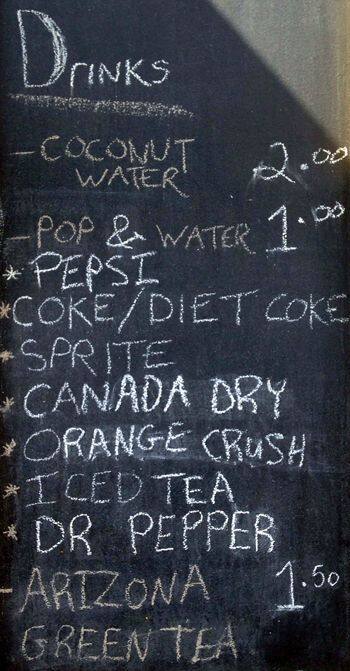 DRINKS
- COCONUT
WATER 2.00
- POP & WATER 1.00
* PEPSI
* COKE/DIET COKE
* SPRITE
* CANADA DRY
* ORANGE CRUSH
* ICED TEA
* DR PEPPER
- ARIZONA 1.50
GREEN TEA